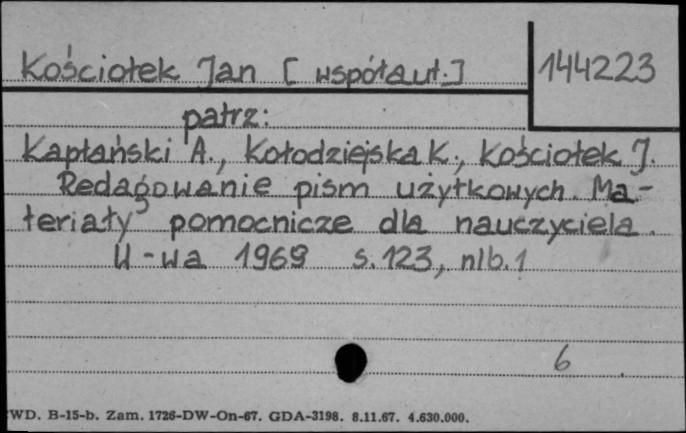 Kościołek Jan [współaut.] 144223
patrz:
Kapłański A., Kołodziejska K., Kościołek J.
Redagowanie pism użytkowych. Ma-
teriały pomocnicze dla nauczyciela.
W-wa 1969 s.123, nlb.1
6
WD. B-15-b. Zam. 1726-DW-On-67. GDA-3198. 8.11.67. 4.630.000.